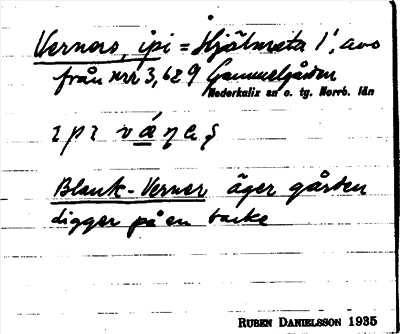 Verners, ipi = Hjälmsta 1', avs
från nrr 3, 6 & 9 Gammelgården
Nederkalix sn o. tg. Norrb. län
Blank-Verner äger gården
ligger på en backe
RUBEN DANIELSSON 1935